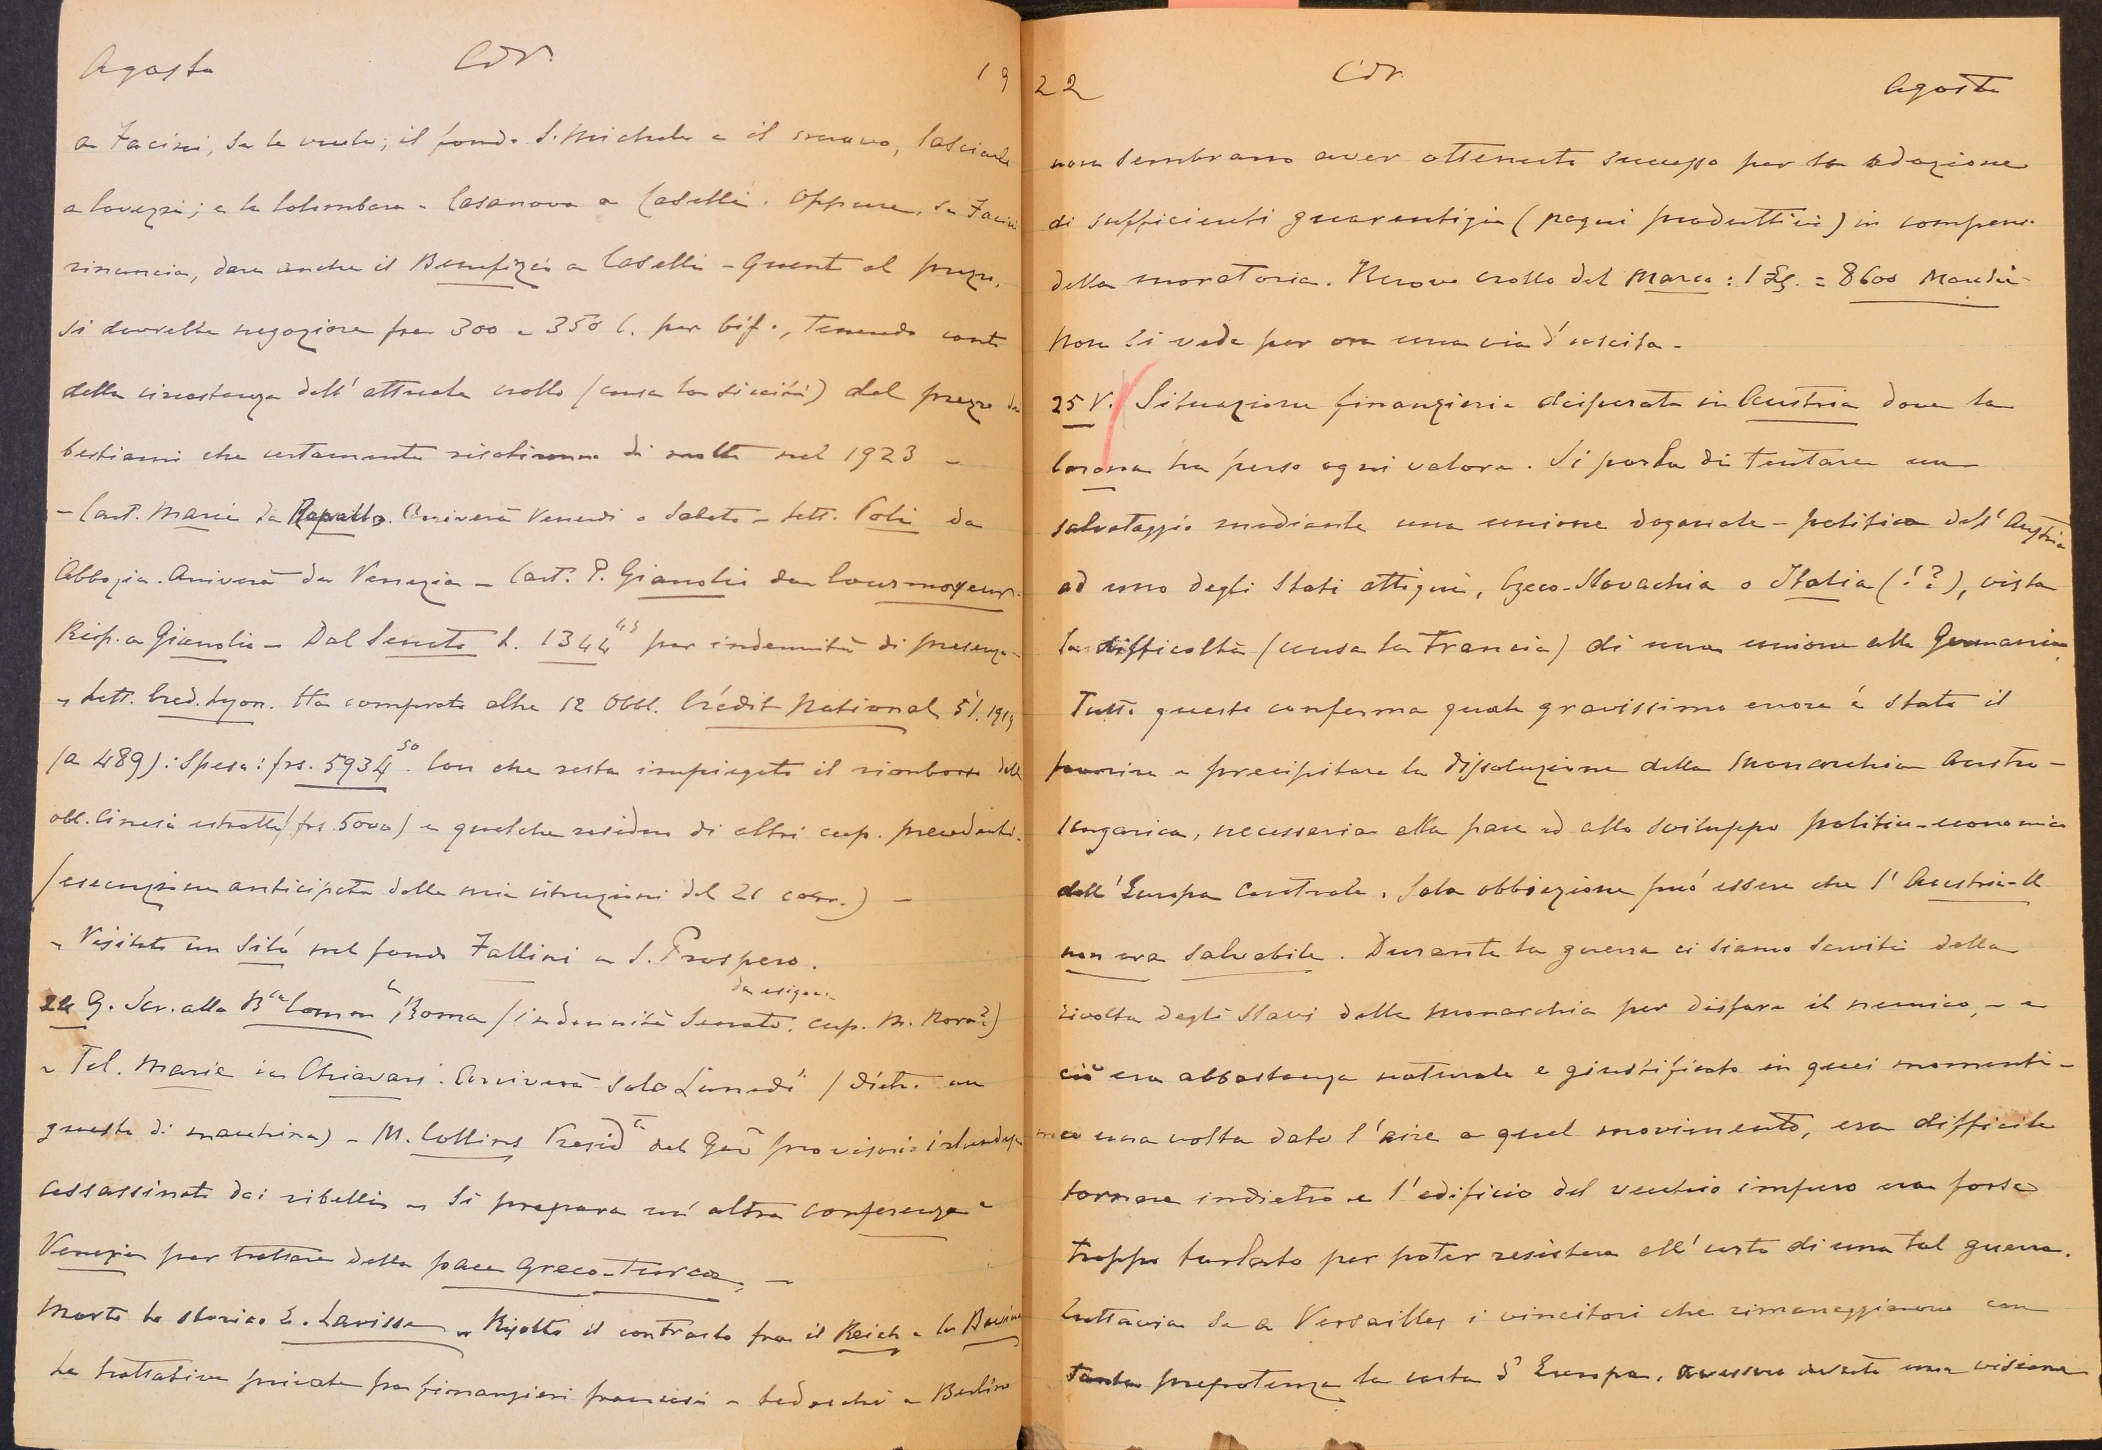 Agosto CdV. 19
a Facini, se la vuole; il fondo S. Michele e il nuovo, lasciarlo
a Covezzi; e la Colombara e Casanova a Caselli. Oppure, se Facini
rinuncia, dare anche il Benefizio a Caselli - Quanto al prezzo,
si dovrebbe negoziare fra 300 e 350 l. per bif., tenendo conto
della circostanza dell'attuale crollo (causa la siccità) del prezzo del
bestiame che certamente risalirà di molto nel 1923 -
- Cart. Maria da Rapallo. Arriverà Venerdì o Sabato - Lett. Poli da
Abbazia. Arriverà da Venezia - Cart. P. Gianolio da Courmayeur.
Risp. a Gianolio - Dal Senato L. 1344 45 per indennità di presenza -
- Lett. Cred. Lyon. Ha comprato altre 12 Obbl. Crédit National 5% 1919
(a 489): Spesa: frs. 5934 50. Con che resta impiegato il rimborso delle
obl. Cinesi estratte (frs. 5000) e qualche residuo di altri cup. precedenti.
(esecuzione anticipata delle mie istruzioni del 21 corr.) -
- Visitato un Silò nel fondo Fallini a S. Prospero.
24 G. Scr. alla Bca Comm. Roma (indennità Senato, cup. da esigere)
- Tel. Maria in Chiavari. Arriverà solo Lunedì (dietro un
guasto di macchina) - M. Collins Presid. te del Gov. provvisorio irlandese
assassinato dai ribelli - Si prepara un'altra conferenza a
Venezia per trattare della pace Greco-Turca. -
Morto lo storico E. Lavisse - Risolto il contrasto fra il Reich e la Baviera
Le trattative private fra finanzieri francesi e tedeschi a Berlino
22 CdV. Agosto
non sembrano aver ottenuto successo per la adozione
di sufficienti guarentigie (pegni produttivi) in compenso
della moratoria. Nuovo crollo del Marco: 1 Lst. = 8600 Marchi -
Non si vede per ora una via d'uscita -
25 V. Situazione finanziaria disperata in Austria dove la
Corona ha perso ogni valore. Si parla di tentare un
salvataggio mediante una unione doganale - politica dell'Austria
ad uno degli Stati attigui, Czeco-Slovachia o Italia (!?), vista
la difficoltà (causa la Francia) di una unione alla Germania.
Tutto questo conferma quale gravissimo errore è stato il
favorire e precipitare la dissoluzione della Monarchia Austro-
Ungarica, necessaria alla pace ed allo sviluppo politico-economico
dell'Europa Centrale. Sola obbiezione può essere che l'Austria-U
non era salvabile. Durante la guerra ci siamo serviti della
rivolta degli Slavi della monarchia per disfare il nemico, - e
ciò era abbastanza naturale e giustificato in quei momenti -
ma una volta dato l'aire a quel movimento, era difficile
tornare indietro e l'edificio del vecchio impero era forse
troppo tarlato per poter resistere all'urto di una tal guerra.
Tuttavia se a Versailles i vincitori che rimaneggiarono con
tanta prepotenza la carta d'Europa, avessero avuto una visione